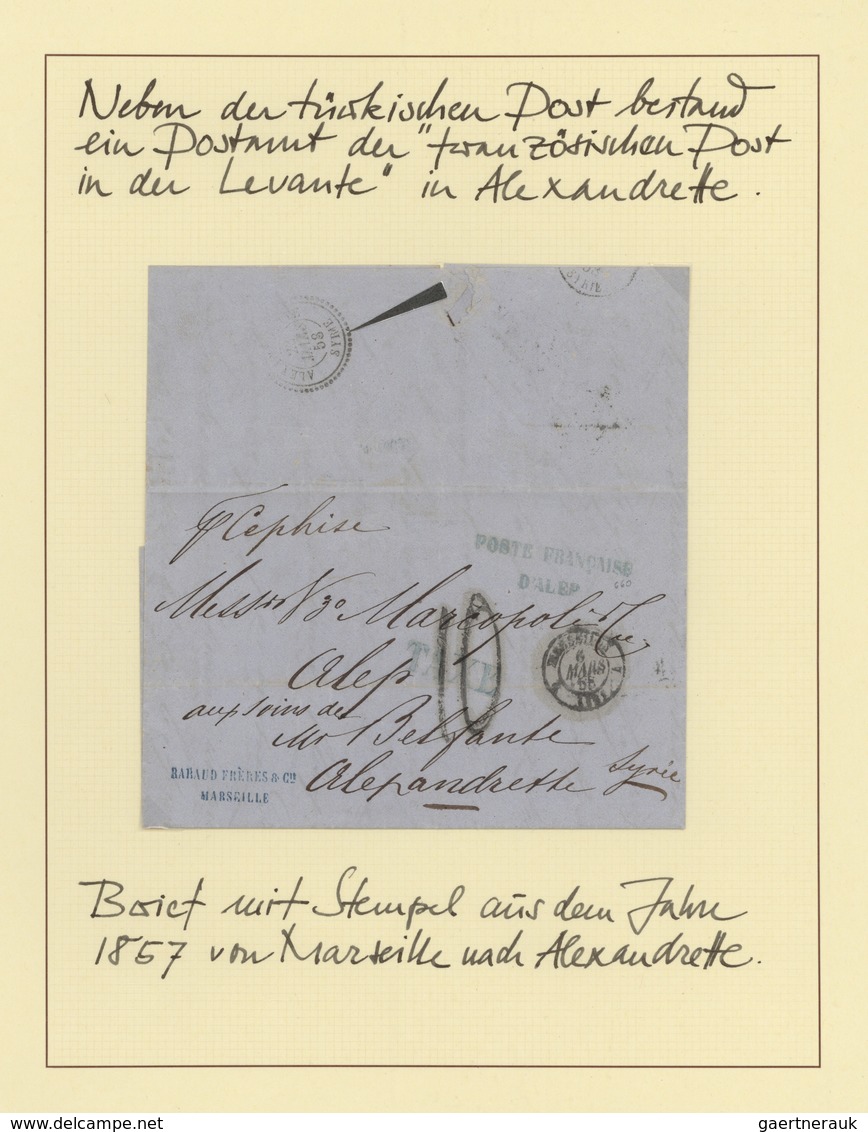 Neben der türkischen Post bestand
ein Postamt der "französischen Post
in der Levante" in Alexandrette.
SYRIE
53
ALEX
p Cephise
POSTE FRANÇAISE
D'ALEP
Messrs Vo Marcopoli &
TAXE
10
MARSEILLE
6
MARS
Alep
aux soins de
Mr Belfante
Alexandrette Syrie
RABAUD FRÈRES & CIE
MARSEILLE
Brief mit Stempel aus dem Jahre
1857 von Marseille nach Alexandrette.
www.delcampe.net
gaertnerauk